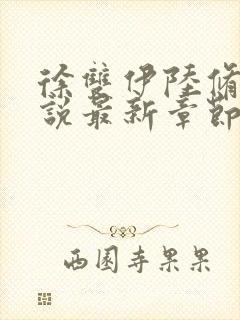 徐雙伊陸脩
說最新章節
西園寺果果